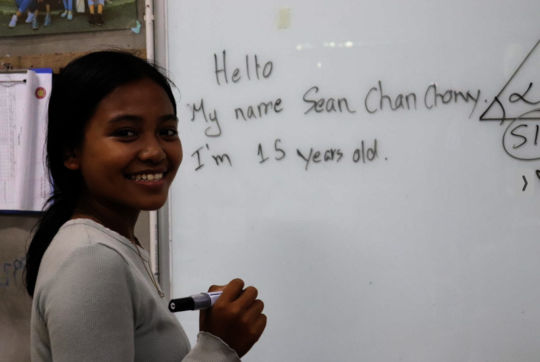 Hello
My name Sean Chan Chorny.
I'm 15 years old.